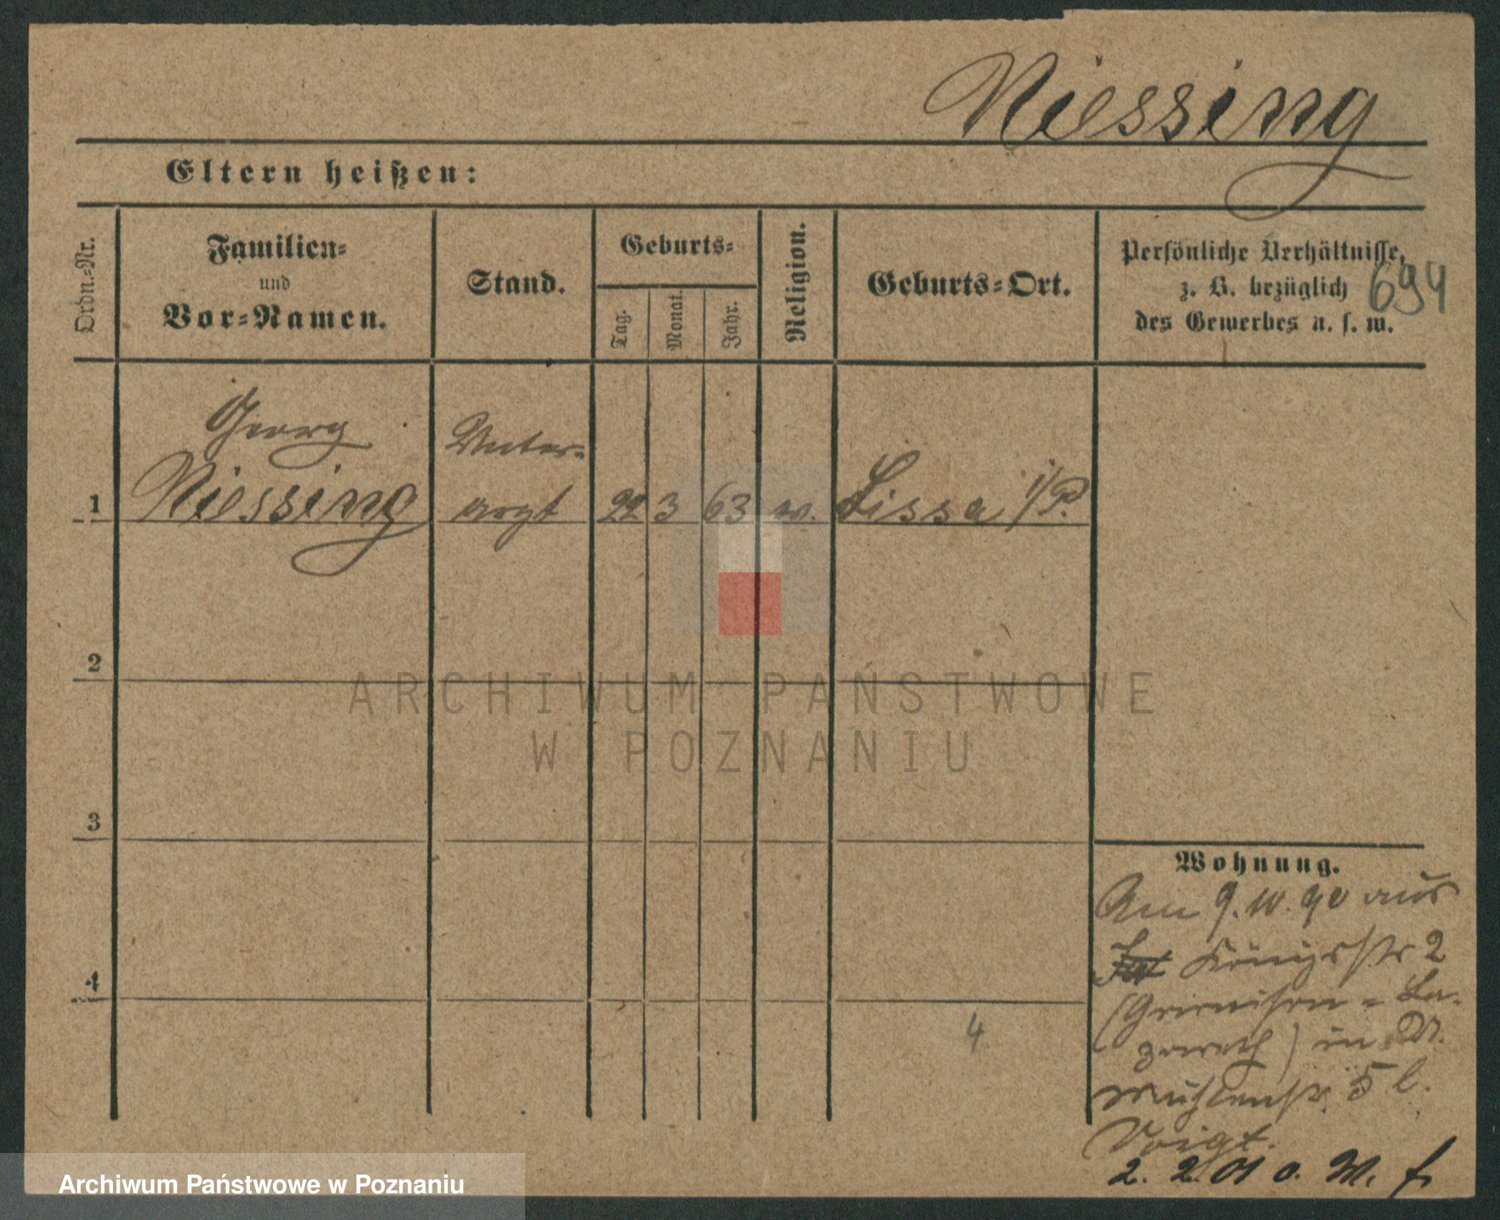 Niessing
Eltern heißen:
Ordn.=Nr.
Familien=
und
Vor=Namen.
Stand.
Geburts=
Tag.
Monat.
Jahr.
Religion.
Geburts=Ort.
Persönliche Verhältnisse,
z. B. bezüglich
des Gewerbes u. s. w.
694
Georg
Niessing
Unter=
arzt
1
22
3
63
Lissa i/P.
2
ARCHIWUM PAŃSTWOWE
W POZNANIU
3
4
4
Wohnung.
Am 9.10.90 aus
Königsstr 2
(Garnison = La-
zareth) in
Mühlenstr. 5 b.
Voigt.
2. 2. 01 o. M. f.
Archiwum Państwowe w Poznaniu